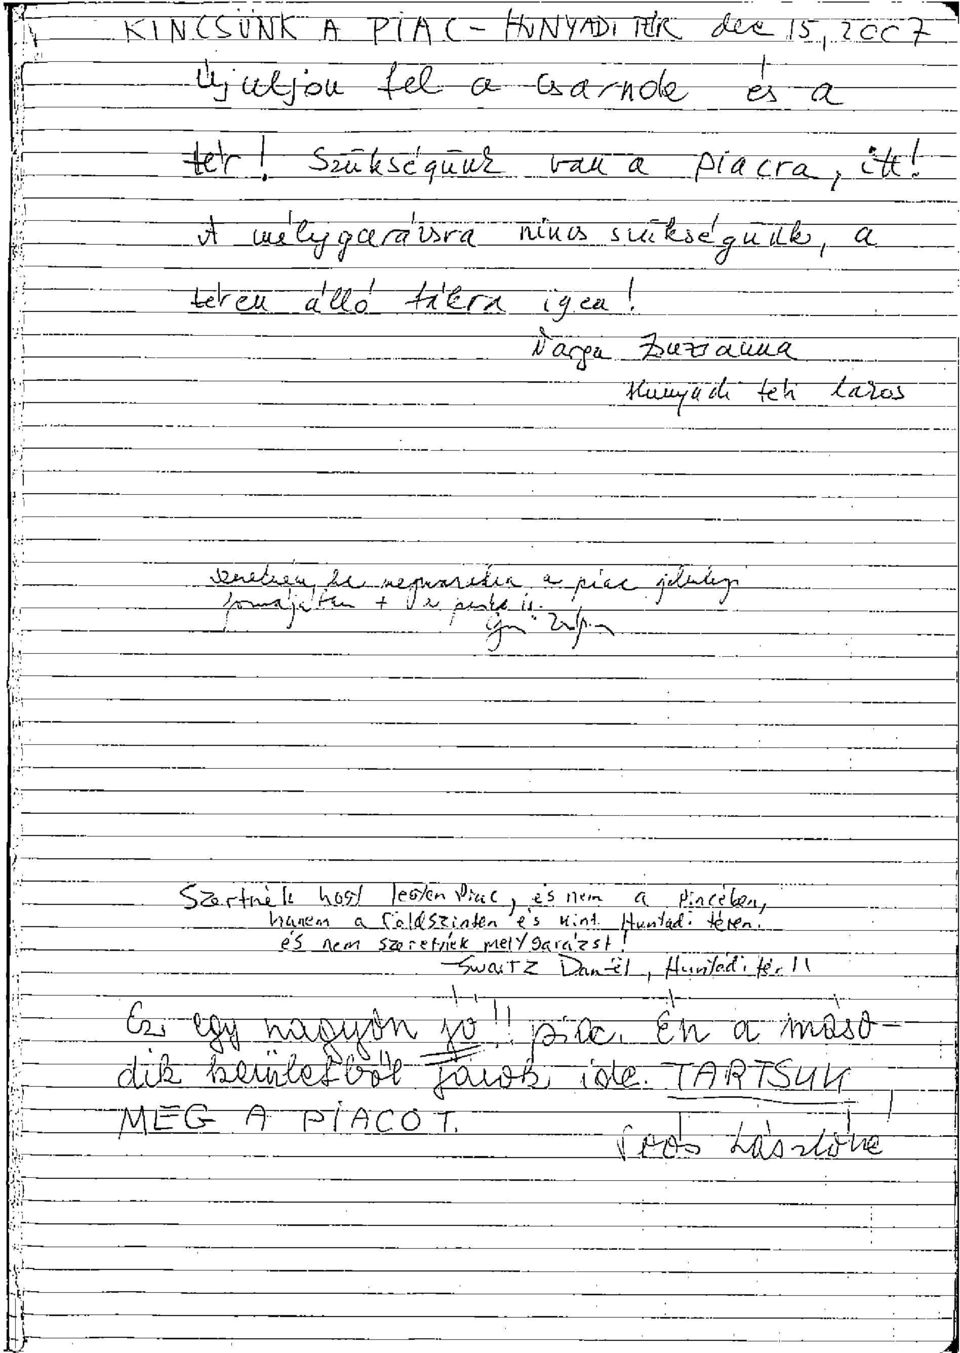 KINCSÜNK A PIAC - HUNYADI TÉR dec 15, 2007
Újuljon fel a csarnok és a
tér! Szükségünk van a piacra, itt!
A mélygarázsra nincs szükségünk, a
téren álló fákra igen!
Varga Zsuzsanna
Hunyadi téri lakos
a piac jelenlegi
formájában +
Szertnék host lesten Piac, és nem a Pincében,
hanem a földszinten és kint Huntadi téren.
és nem szeretnék melygarázst!
Swartz Daniel, Huntadi tér 11
Ez egy nagyon jó!! piac. Én a máso-
dik kerületből járok ide. TARTSUK
MEG A PIACOT!
Soós Lászlóné